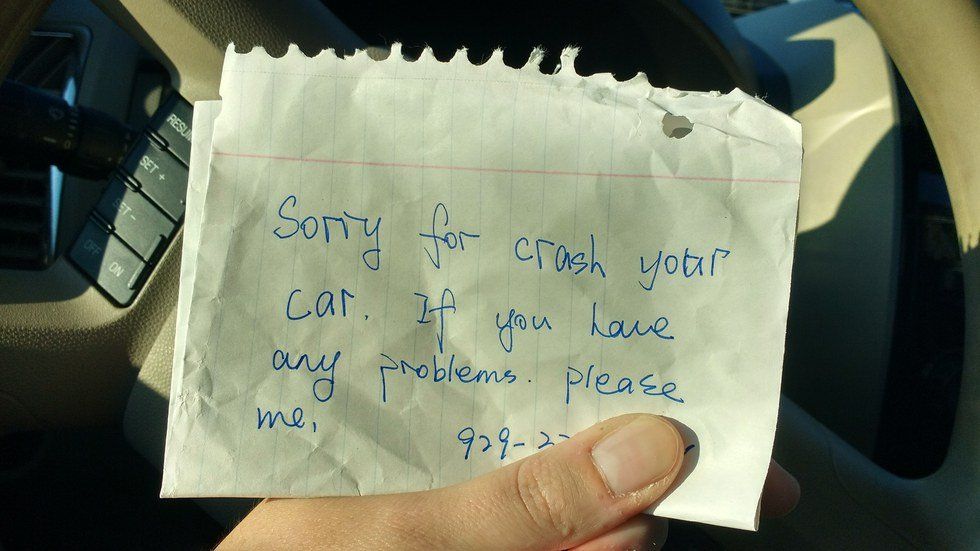 RESU
SET +
SET -
OFF ON
Sorry for crash your
car. If you have
any problems. please
me,
929-22